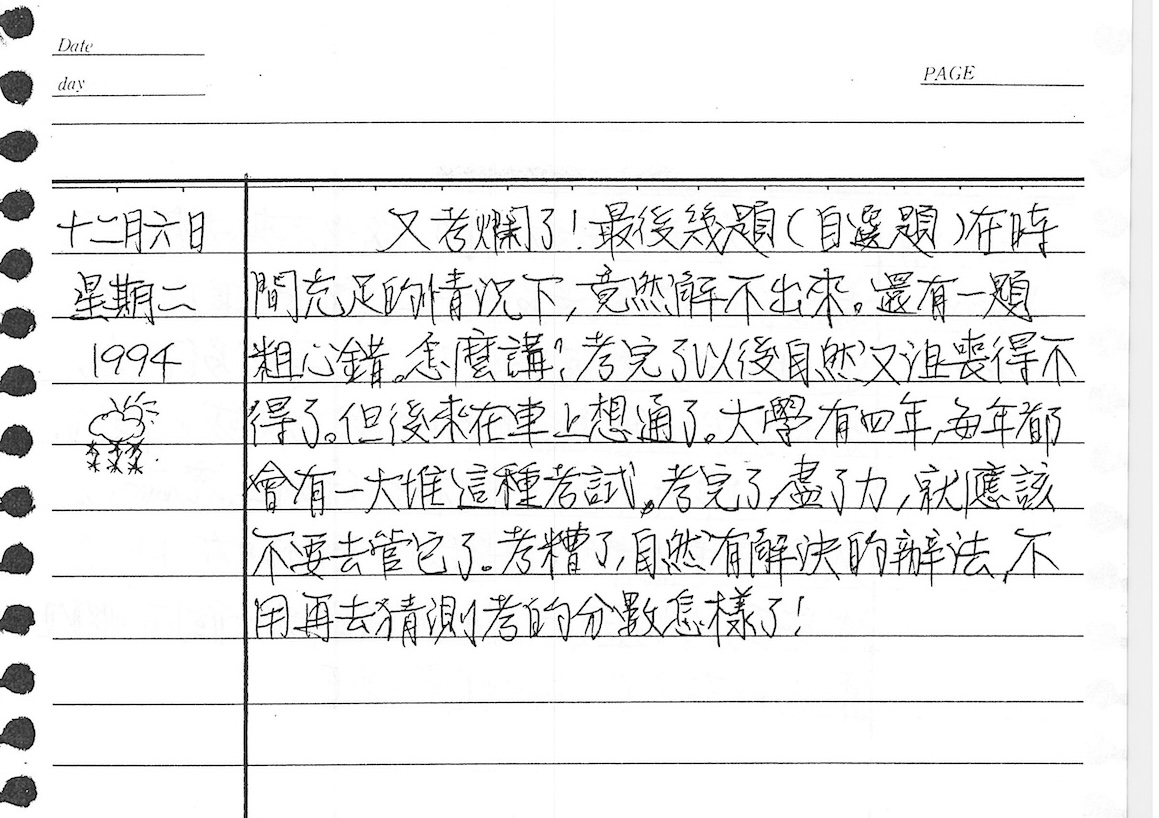 Date
day
PAGE
十二月六日
星期二
1994
又考爛了!最後幾題(自選題)在時
間充足的情況下,竟然解不出來。還有一題
粗心錯。怎麼講?考完了以後自然又沮喪得不
得了。但後來在車上想通了。大學有四年,每年都
會有一大堆這種考試。考完了,盡了力,就應該
不要去管它了。考糟了,自然有解決的辦法,不
用再去猜測考的分數怎樣了!